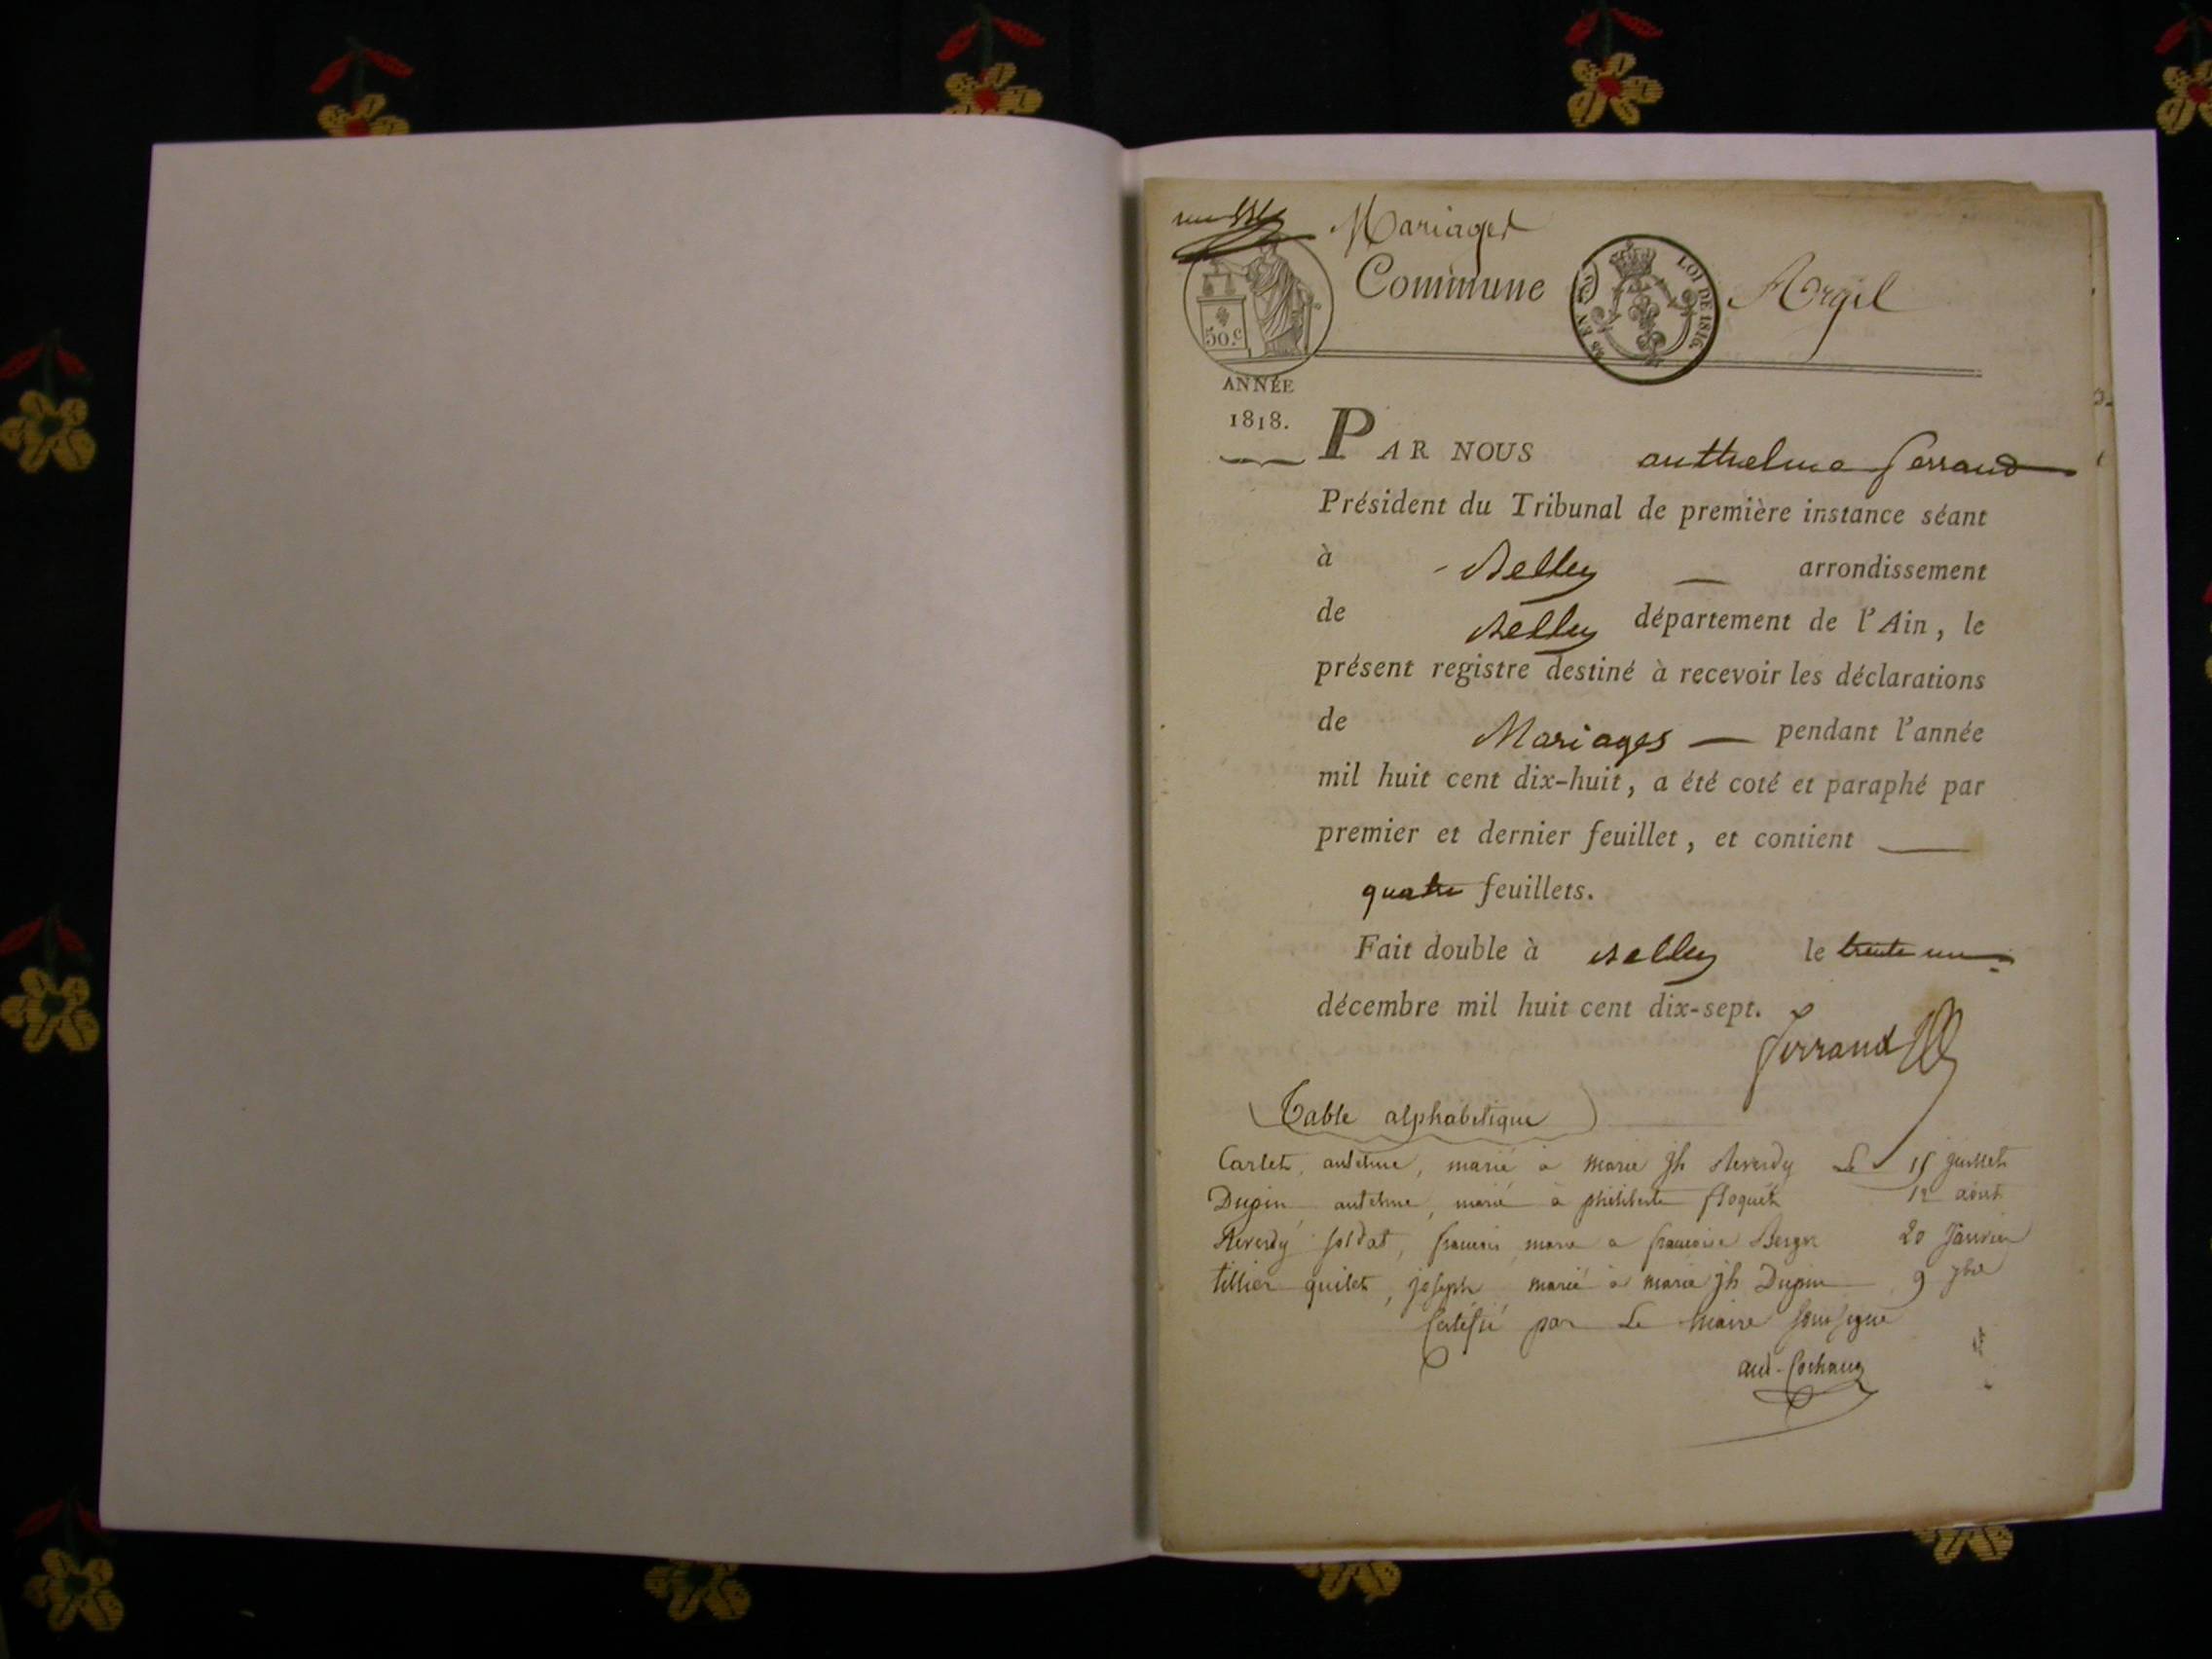 Mariages
Commune Argil
50.c
LOI DE 1816.
ANNÉE
1818.
PAR NOUS anthelme ferrand
Président du Tribunal de première instance séant
à Belley arrondissement
de Belley département de l'Ain, le
présent registre destiné à recevoir les déclarations
de Mariages — pendant l'année
mil huit cent dix-huit, a été coté et paraphé par
premier et dernier feuillet, et contient —
quatre feuillets.
Fait double à Belley le trente un
décembre mil huit cent dix-sept.
ferrand
Table alphabetique
Carlet, antelme, marié à marie jh Reverdy Le 15 juillet
Dupin antelme, marié à philiberte floquet 12 août
Reverdy soldat, francois marié a francoise Berger 20 Janvier
tillier guilet, joseph marié à marie jh Dupin 9 7bre
Certifié par Le maire soussigné
ant. Cochand